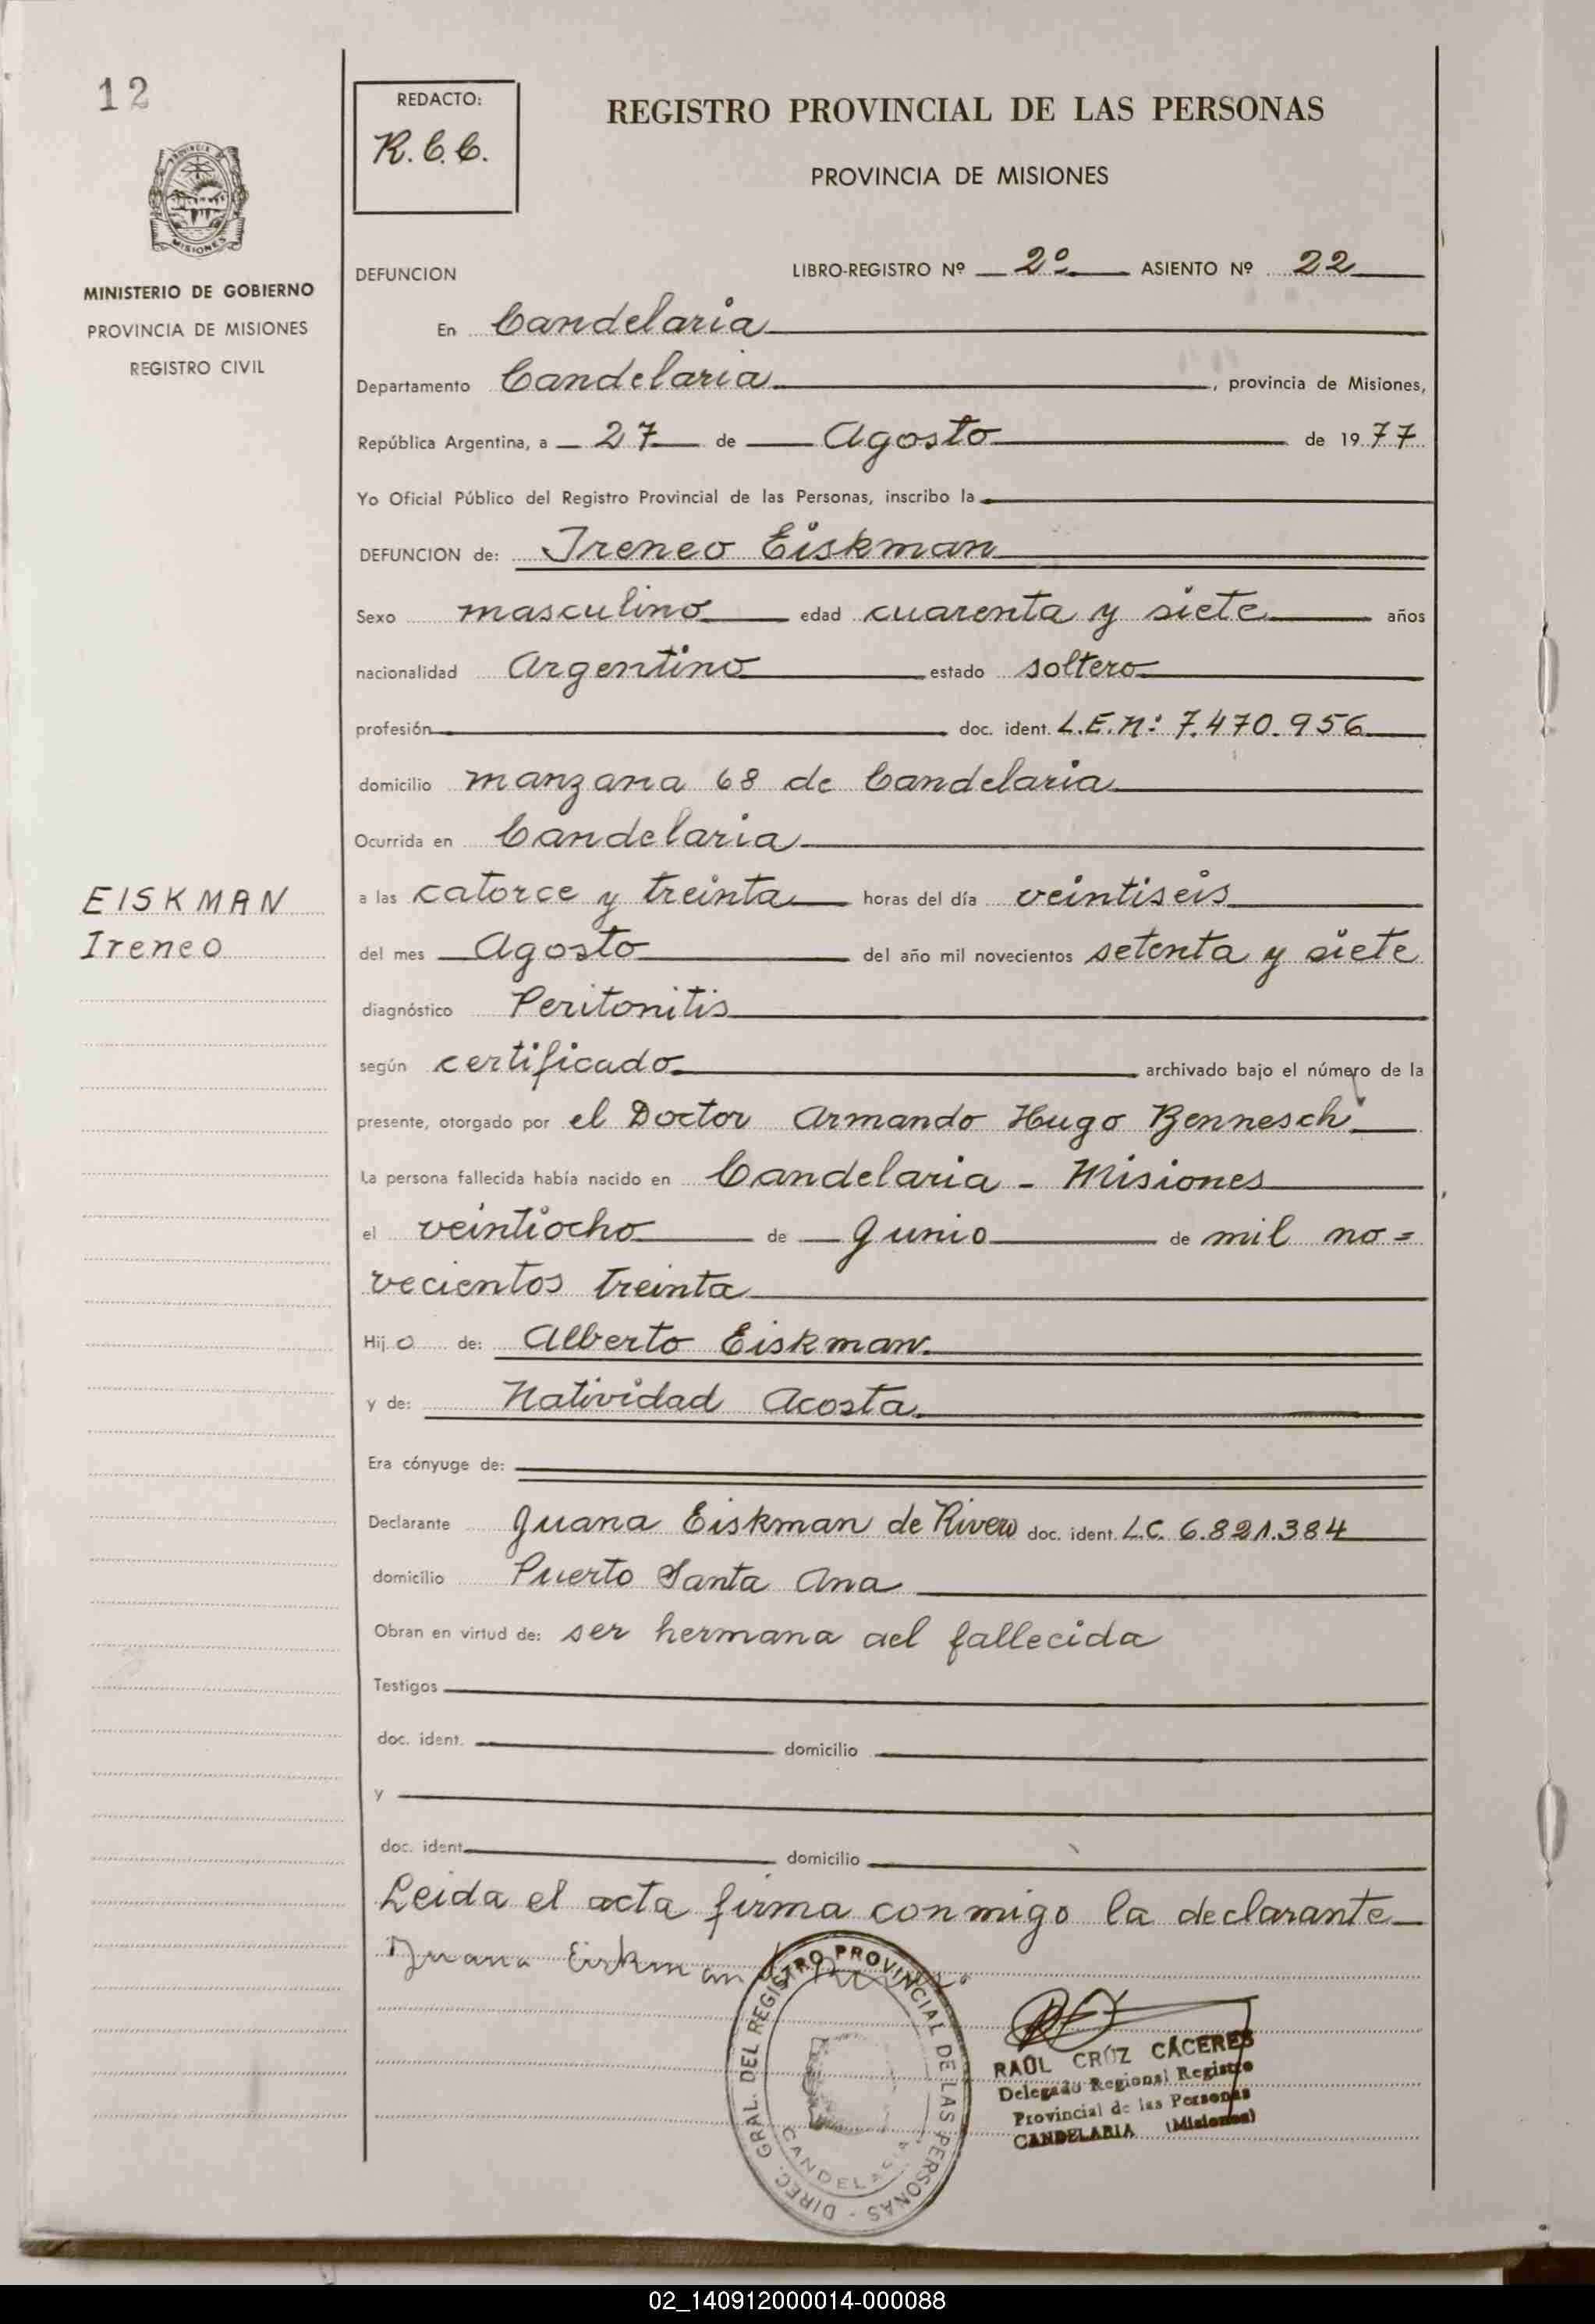 12
REDACTO:
R.C.C.
REGISTRO PROVINCIAL DE LAS PERSONAS
PROVINCIA DE MISIONES
PROVINCIA
MISIONES
MINISTERIO DE GOBIERNO
PROVINCIA DE MISIONES
REGISTRO CIVIL
DEFUNCION LIBRO-REGISTRO Nº 2º ASIENTO Nº 22
En Candelaria
Departamento Candelaria, provincia de Misiones,
República Argentina, a 27 de Agosto de 1977
Yo Oficial Público del Registro Provincial de las Personas, inscribo la
DEFUNCION de: Ireneo Eiskman
Sexo masculino edad cuarenta y siete años
nacionalidad Argentino estado soltero
profesión doc. ident. L.E.N: 7.470.956
domicilio manzana 68 de Candelaria
Ocurrida en Candelaria
EISKMAN
Ireneo
a las catorce y treinta horas del día veintiseis
del mes Agosto del año mil novecientos setenta y siete
diagnóstico Peritonitis
según certificado archivado bajo el número de la
presente, otorgado por el Doctor Armando Hugo Bennesch
La persona fallecida había nacido en Candelaria - Misiones
el veintiocho de Junio de mil no=
vecientos treinta
Hijo de: Alberto Eiskman
y de: Natividad Acosta
Era cónyuge de:
Declarante Juana Eiskman de Rivero doc. ident. L.C. 6.821.384
domicilio Puerto Santa Ana
Obran en virtud de: ser hermana del fallecida
Testigos
doc. ident. domicilio
y
doc. ident. domicilio
Leida el acta firma conmigo la declarante
Juana Eiskman
DIREC. GRAL. DEL REGISTRO PROVINCIAL DE LAS PERSONAS -
CANDELARIA
RAÚL CRUZ CÁCERES
Delegado Regional Registro
Provincial de las Personas
CANDELARIA (Misiones)
02_140912000014-000088